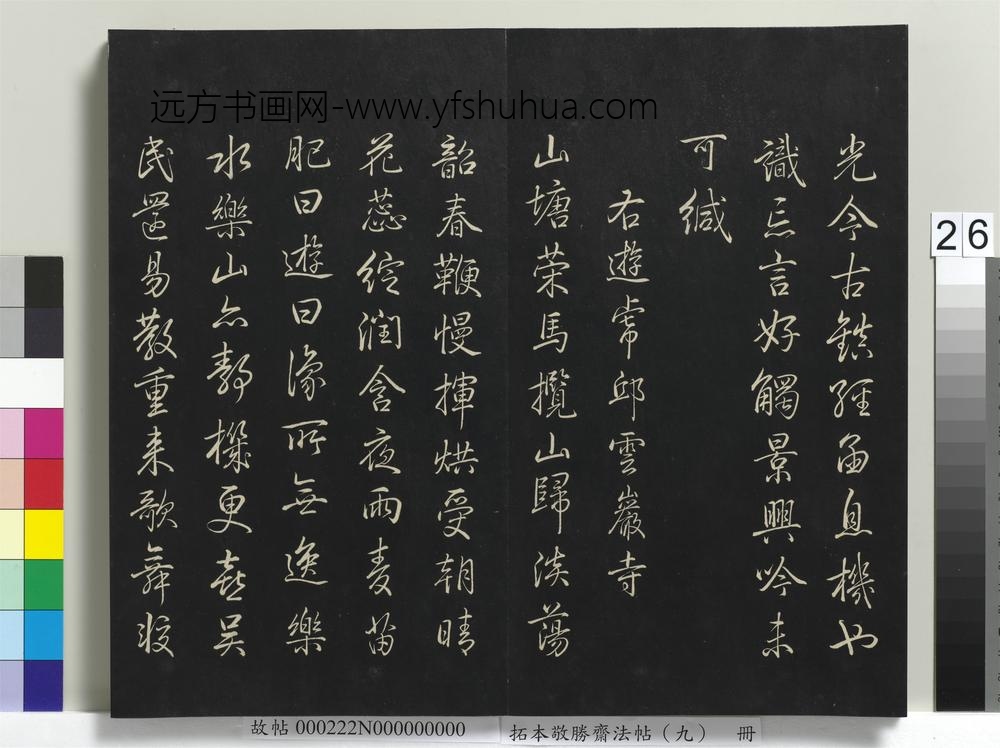 远方书画网-www.yfshuhua.com
光今古鎮經函息機也
識忘言好觸景興吟未
可緘
右遊虎邱雲巖寺
山塘策馬攬山歸淡蕩
韶春鞭慢揮烘受朝晴
花蕊綻潤含夜雨麥苗
肥曰遊曰豫所無逸樂
水樂山亦靜機更喜吳
民還易教重來歌舞
26
故帖 000222N000000000
拓本敬勝齋法帖（九） 冊